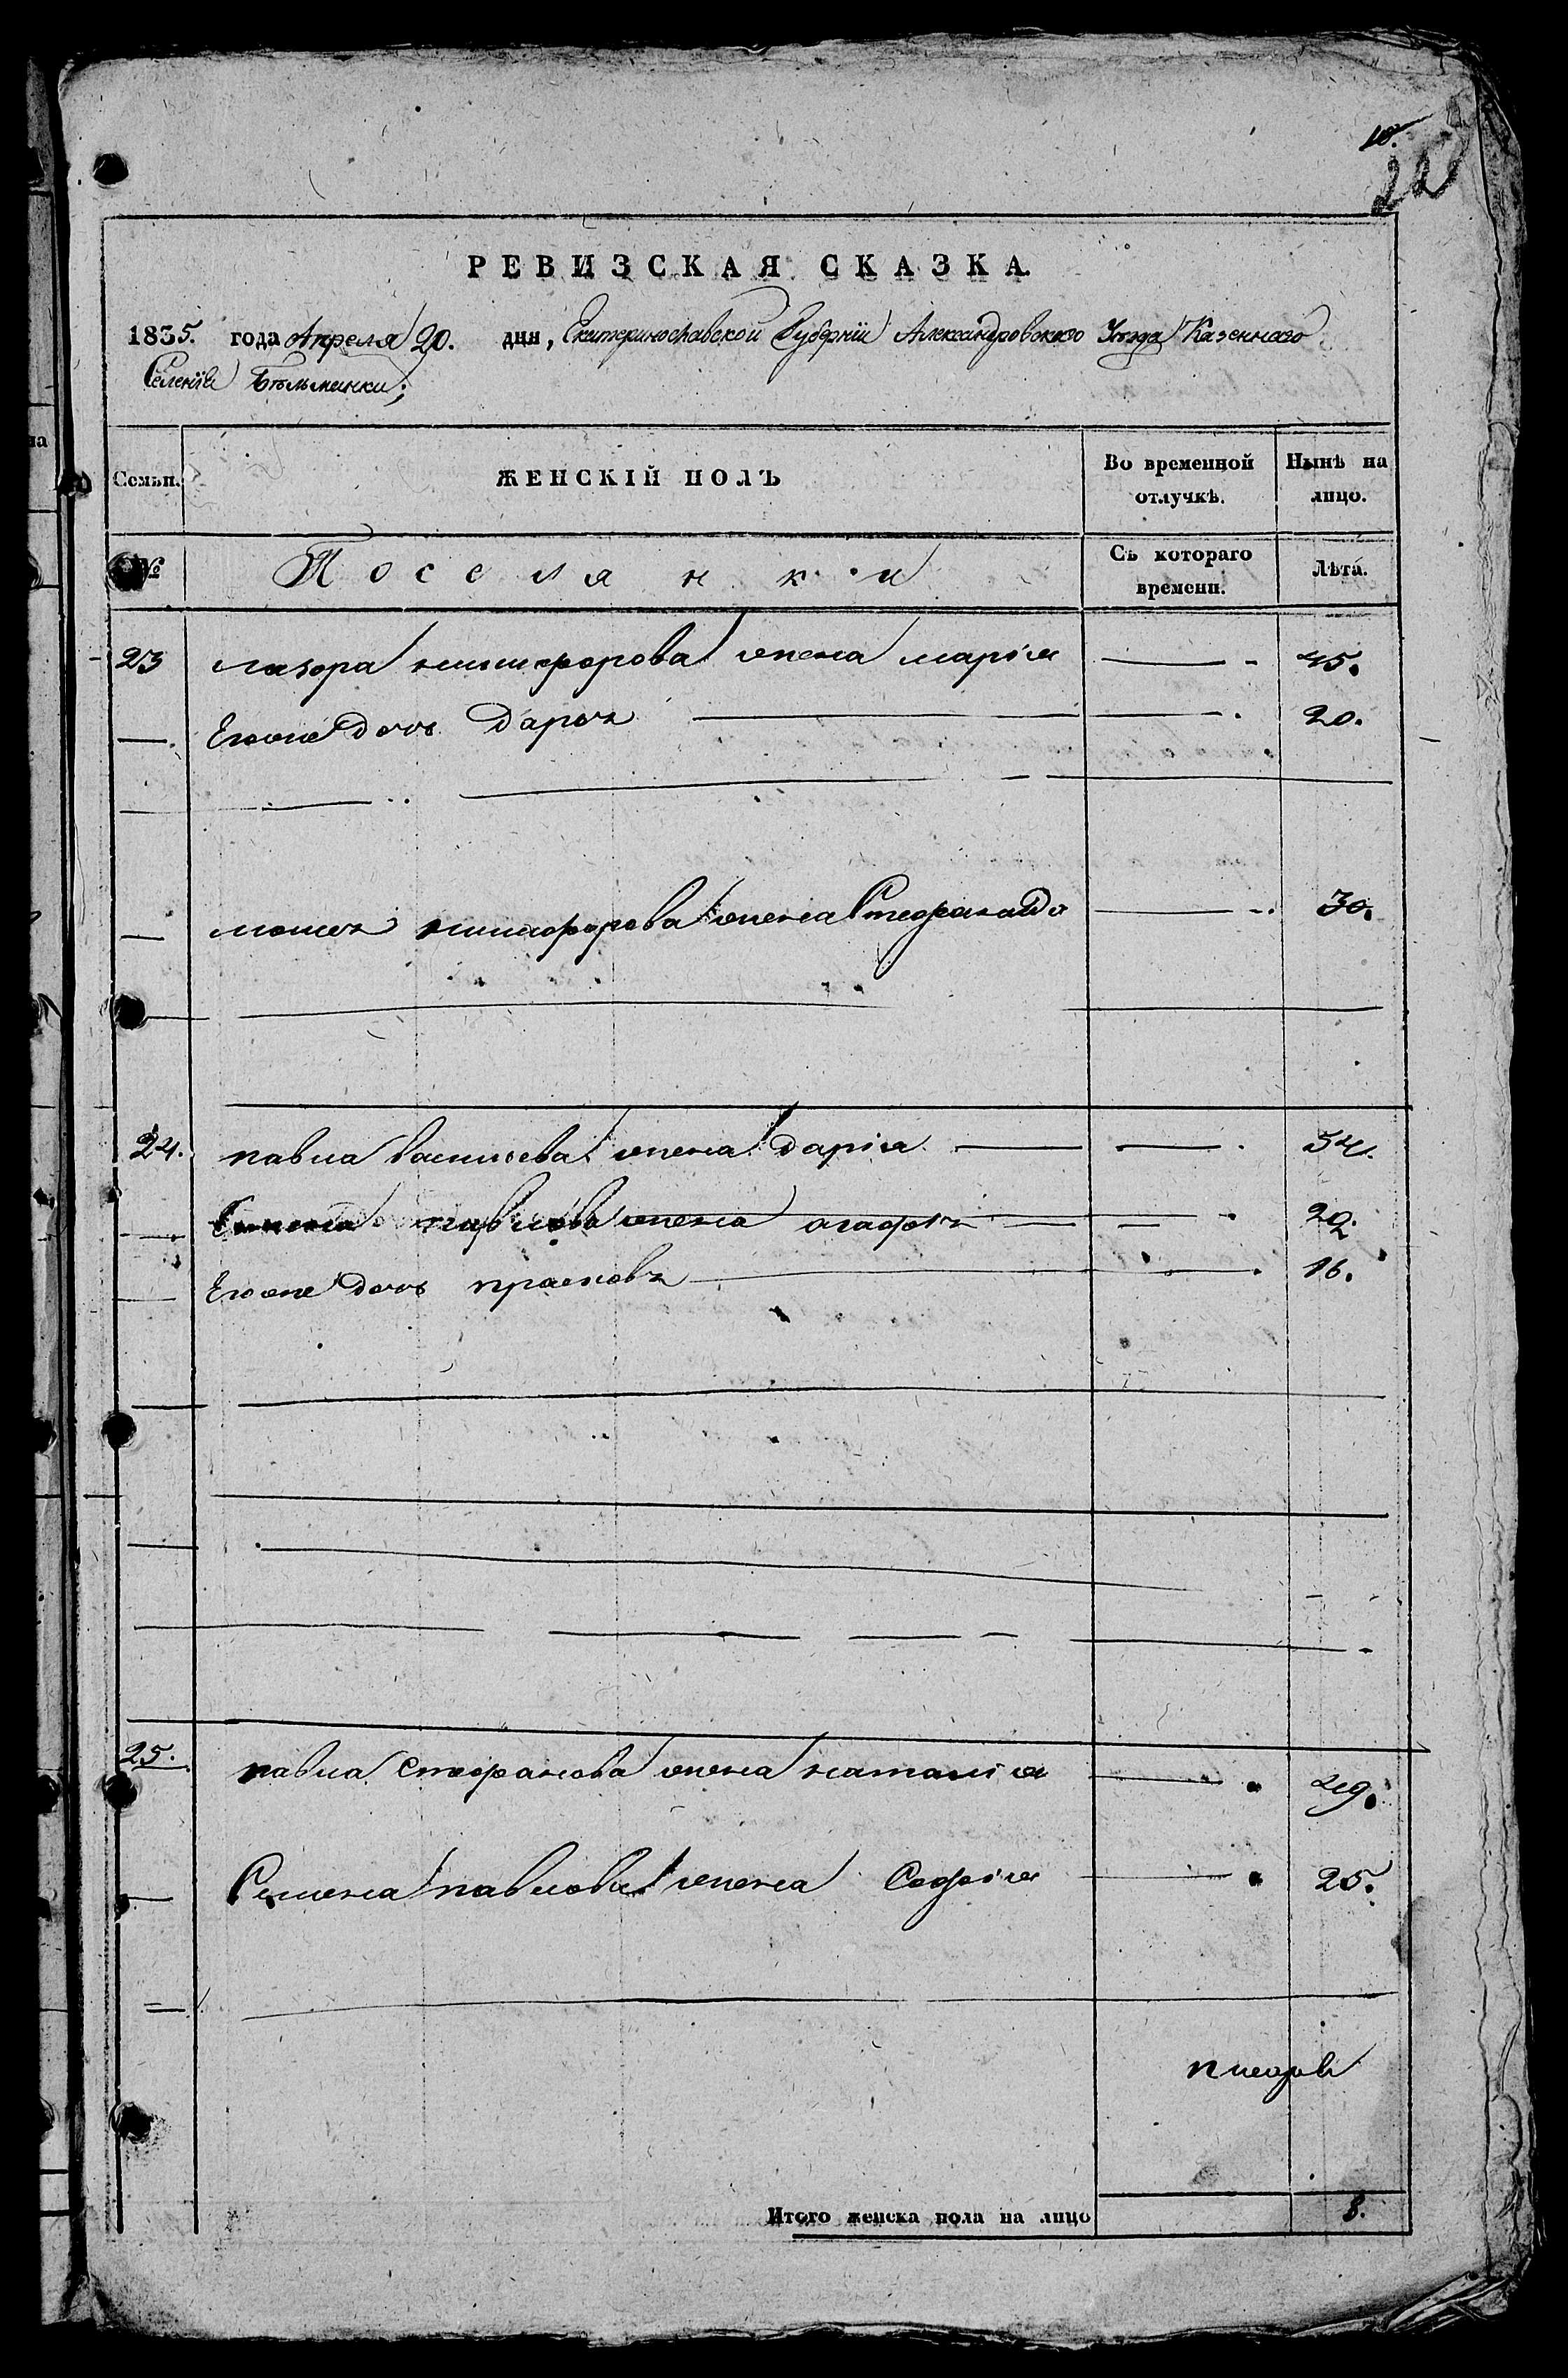 10.
22
РЕВИЗСКАЯ СКАЗКА.
1835. года Апреля 20. дня, Екатеринославской Губерніи Александровскаго Уѣзда Казеннаго
Селенія Бѣльманки;
Семьи. ЖЕНСКІЙ ПОЛЪ Во временной отлучкѣ. Нынѣ на лицо.
№ Поселянки Съ котораго времени. Лѣта.
23 лазора никифорова жена марія 45.
Егоже дочь Дарья 20.
никифорова жена Стефанида 30.
24. павла васильева жена дарія 54.
Семена павлова жена агафія
Егоже дочь прасковья 16.
25. павла Стефанова жена наталія 29.
Семена павлова жена Софія 25.
Итого женска пола на лицо 8.